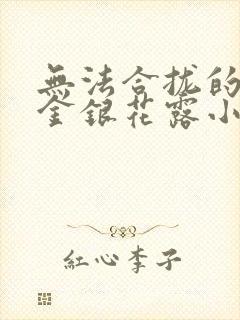 無法合拢的
金銀花露小
紅心李子